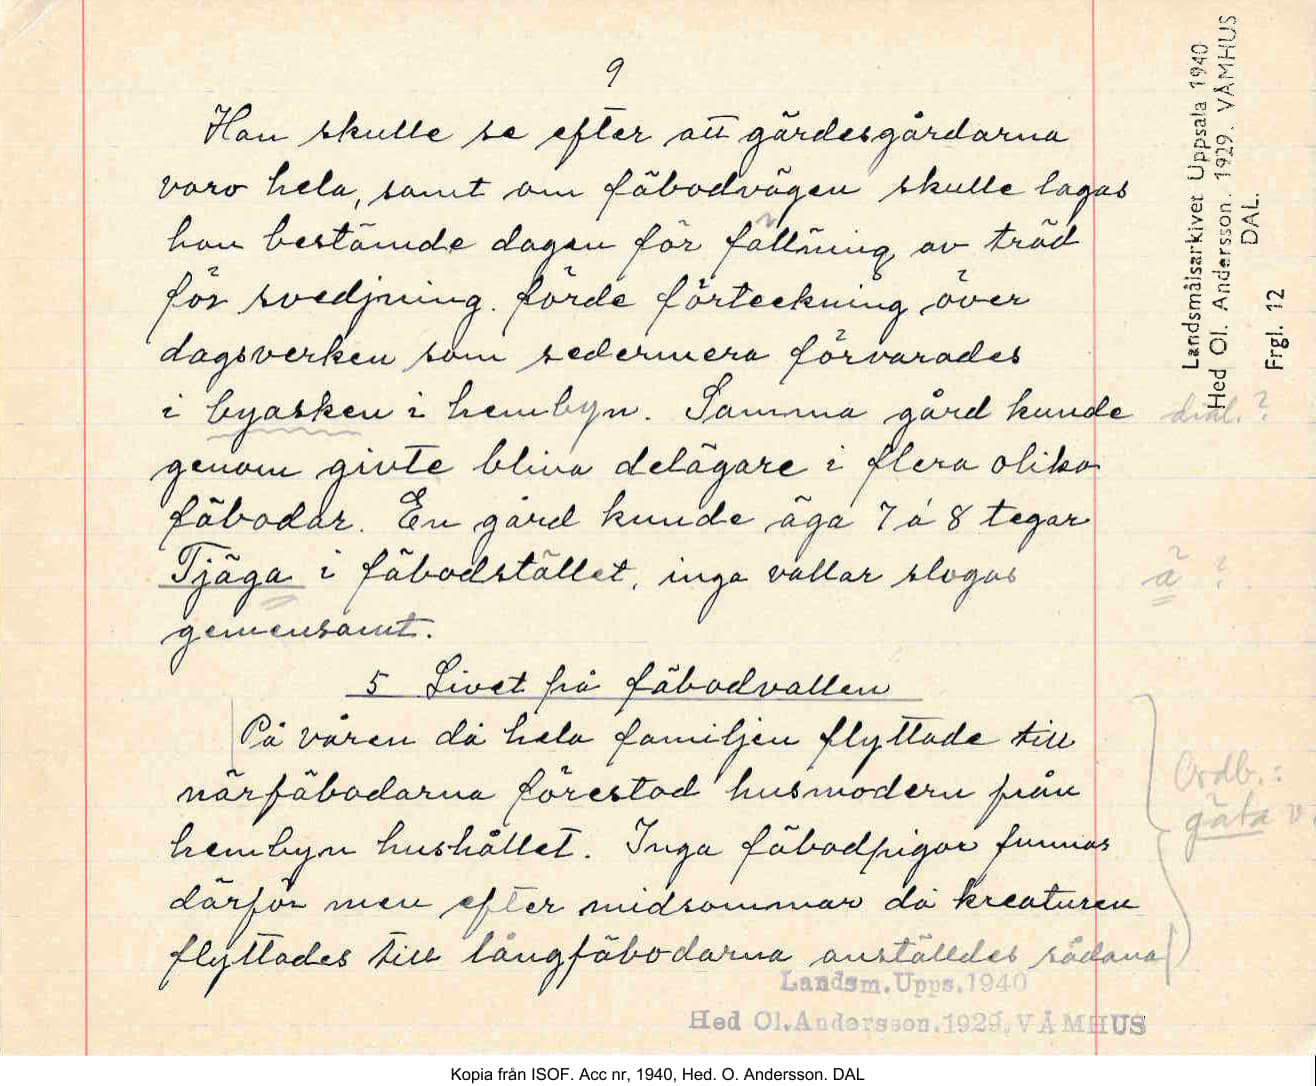 9
Han skulle se efter att gärdesgårdarna
voro hela, samt om fäbodvägen skulle lagas
han bestämde dagen för fällning av träd
för svedjning. förde förteckning över
dagsverken som sedermera förvarades
i byasken i hembyn. Samma gård kunde
dial.?
genom givte bliva delägare i flera olika
fäbodar. En gård kunde äga 7 á 8 tegar
Tjäga i fäbodstället, inga vallar slogas
ä ?
gemensamt.
5 Livet på fäbodvallen
På våren då hela familjen flyttade till
närfäbodarna förestod husmodern från
Ordb.:
gäta v
hembyn hushållet. Inga fäbodpigor funnos
därför men efter midsommar då kreaturen
flyttades till långfäbodarna anställdes sådana
Landsm.Upps.1940
Hed Ol.Andersson.1929.VÅMHUS
Landsmålsarkivet Uppsala 1940
Hed Ol. Andersson. 1929. VÅMHUS
DAL.
Frgl. 12
Kopia från ISOF. Acc nr, 1940, Hed. O. Andersson. DAL